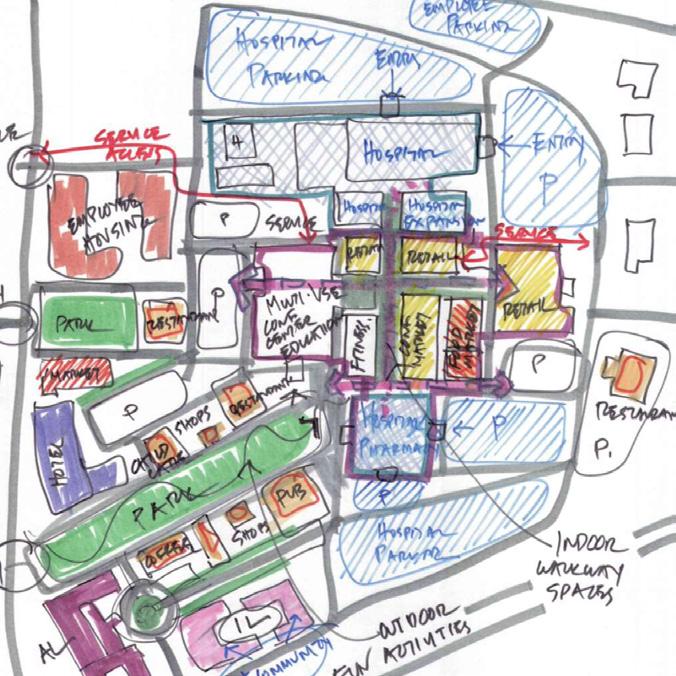 EMPLOYEE
PARKING
HOSPITAL
PARKING
ENTRY
SERVICE
ACCESS
H
HOSPITAL
ENTRY
P
EMPLOYEE
HOUSING
P
SERVICE
HOSPITAL
HOSPITAL
EXPANSION
SERVICE
RETAIL
RETAIL
RETAIL
P
MULTI-USE
CONF
CENTER
EDUCATION
PARK
RESTAURANT
FITNESS
MARKET
FOOD
MARKET
MARKET
P
P
RESTAURANT
P.
HOTEL
SHOPS
RESTAURANT
CHILD
CARE
HOSPITAL
PHARMACY
P
PARK
PUB
P
SHOPS
COFFEE
HOSPITAL
PARKING
INDOOR
WALKWAY
SPACES
AL
IL
OUTDOOR
FUN ACTIVITIES
COMMUNITY